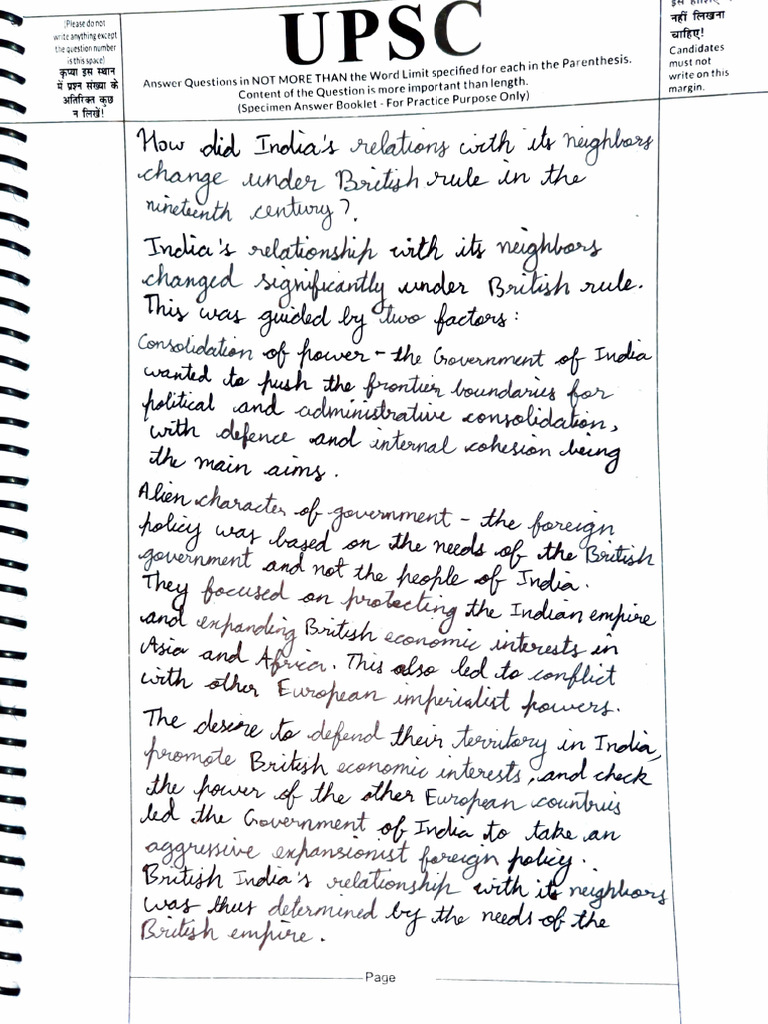 (Please do not
write anything except
the question number
in this space)
कृपया इस स्थान
में प्रश्न संख्या के
अतिरिक्त कुछ
न लिखें!
UPSC
Answer Questions in NOT MORE THAN the Word Limit specified for each in the Parenthesis.
Content of the Question is more important than length.
(Specimen Answer Booklet - For Practice Purpose Only)
नहीं लिखना
चाहिए!
Candidates
must not
write on this
margin.
How did India's relations with its neighbors
change under British rule in the
nineteenth century?
India's relationship with its neighbors
changed significantly under British rule.
This was guided by two factors:
Consolidation of power - the Government of India
wanted to push the frontier boundaries for
political and administrative consolidation,
with defence and internal cohesion being
the main aims.
Alien character of government - the foreign
policy was based on the needs of the British
government and not the people of India.
They focused on protecting the Indian empire
and expanding British economic interests in
Asia and Africa. This also led to conflict
with other European imperialist powers.
The desire to defend their territory in India,
promote British economic interests, and check
the power of the other European countries
led the Government of India to take an
aggressive expansionist foreign policy.
British India's relationship with its neighbors
was thus determined by the needs of the
British empire.
Page